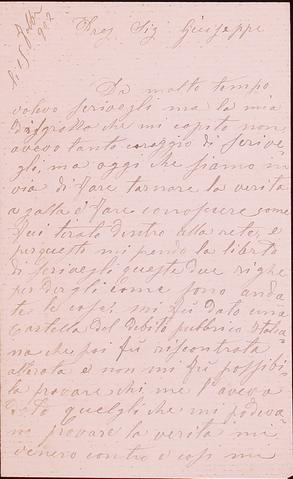 Preg Sig Giuseppe
Li 15 902
Da molto tempo
volevo scrivegli ma la mia
disgrazia che mi capito non
avevo tanto coraggio di scrive
gli, ma oggi che siamo in
via di fare tornare la verità
a galla e fare conoscere come
fui tirato dentro alla rete, e
perquesto mi prendo la libertà
di scrivegli queste due righe
per dirgli come sono anda
te le cose, mi fù dato una
cartella del Debito pubbrico Italia
na che poi fù riscontrata
alterata e non mi fù possibi
la provare chi me l'aveva
dato quelgli che mi podeva
no provare la verità mi
venero contro e così me